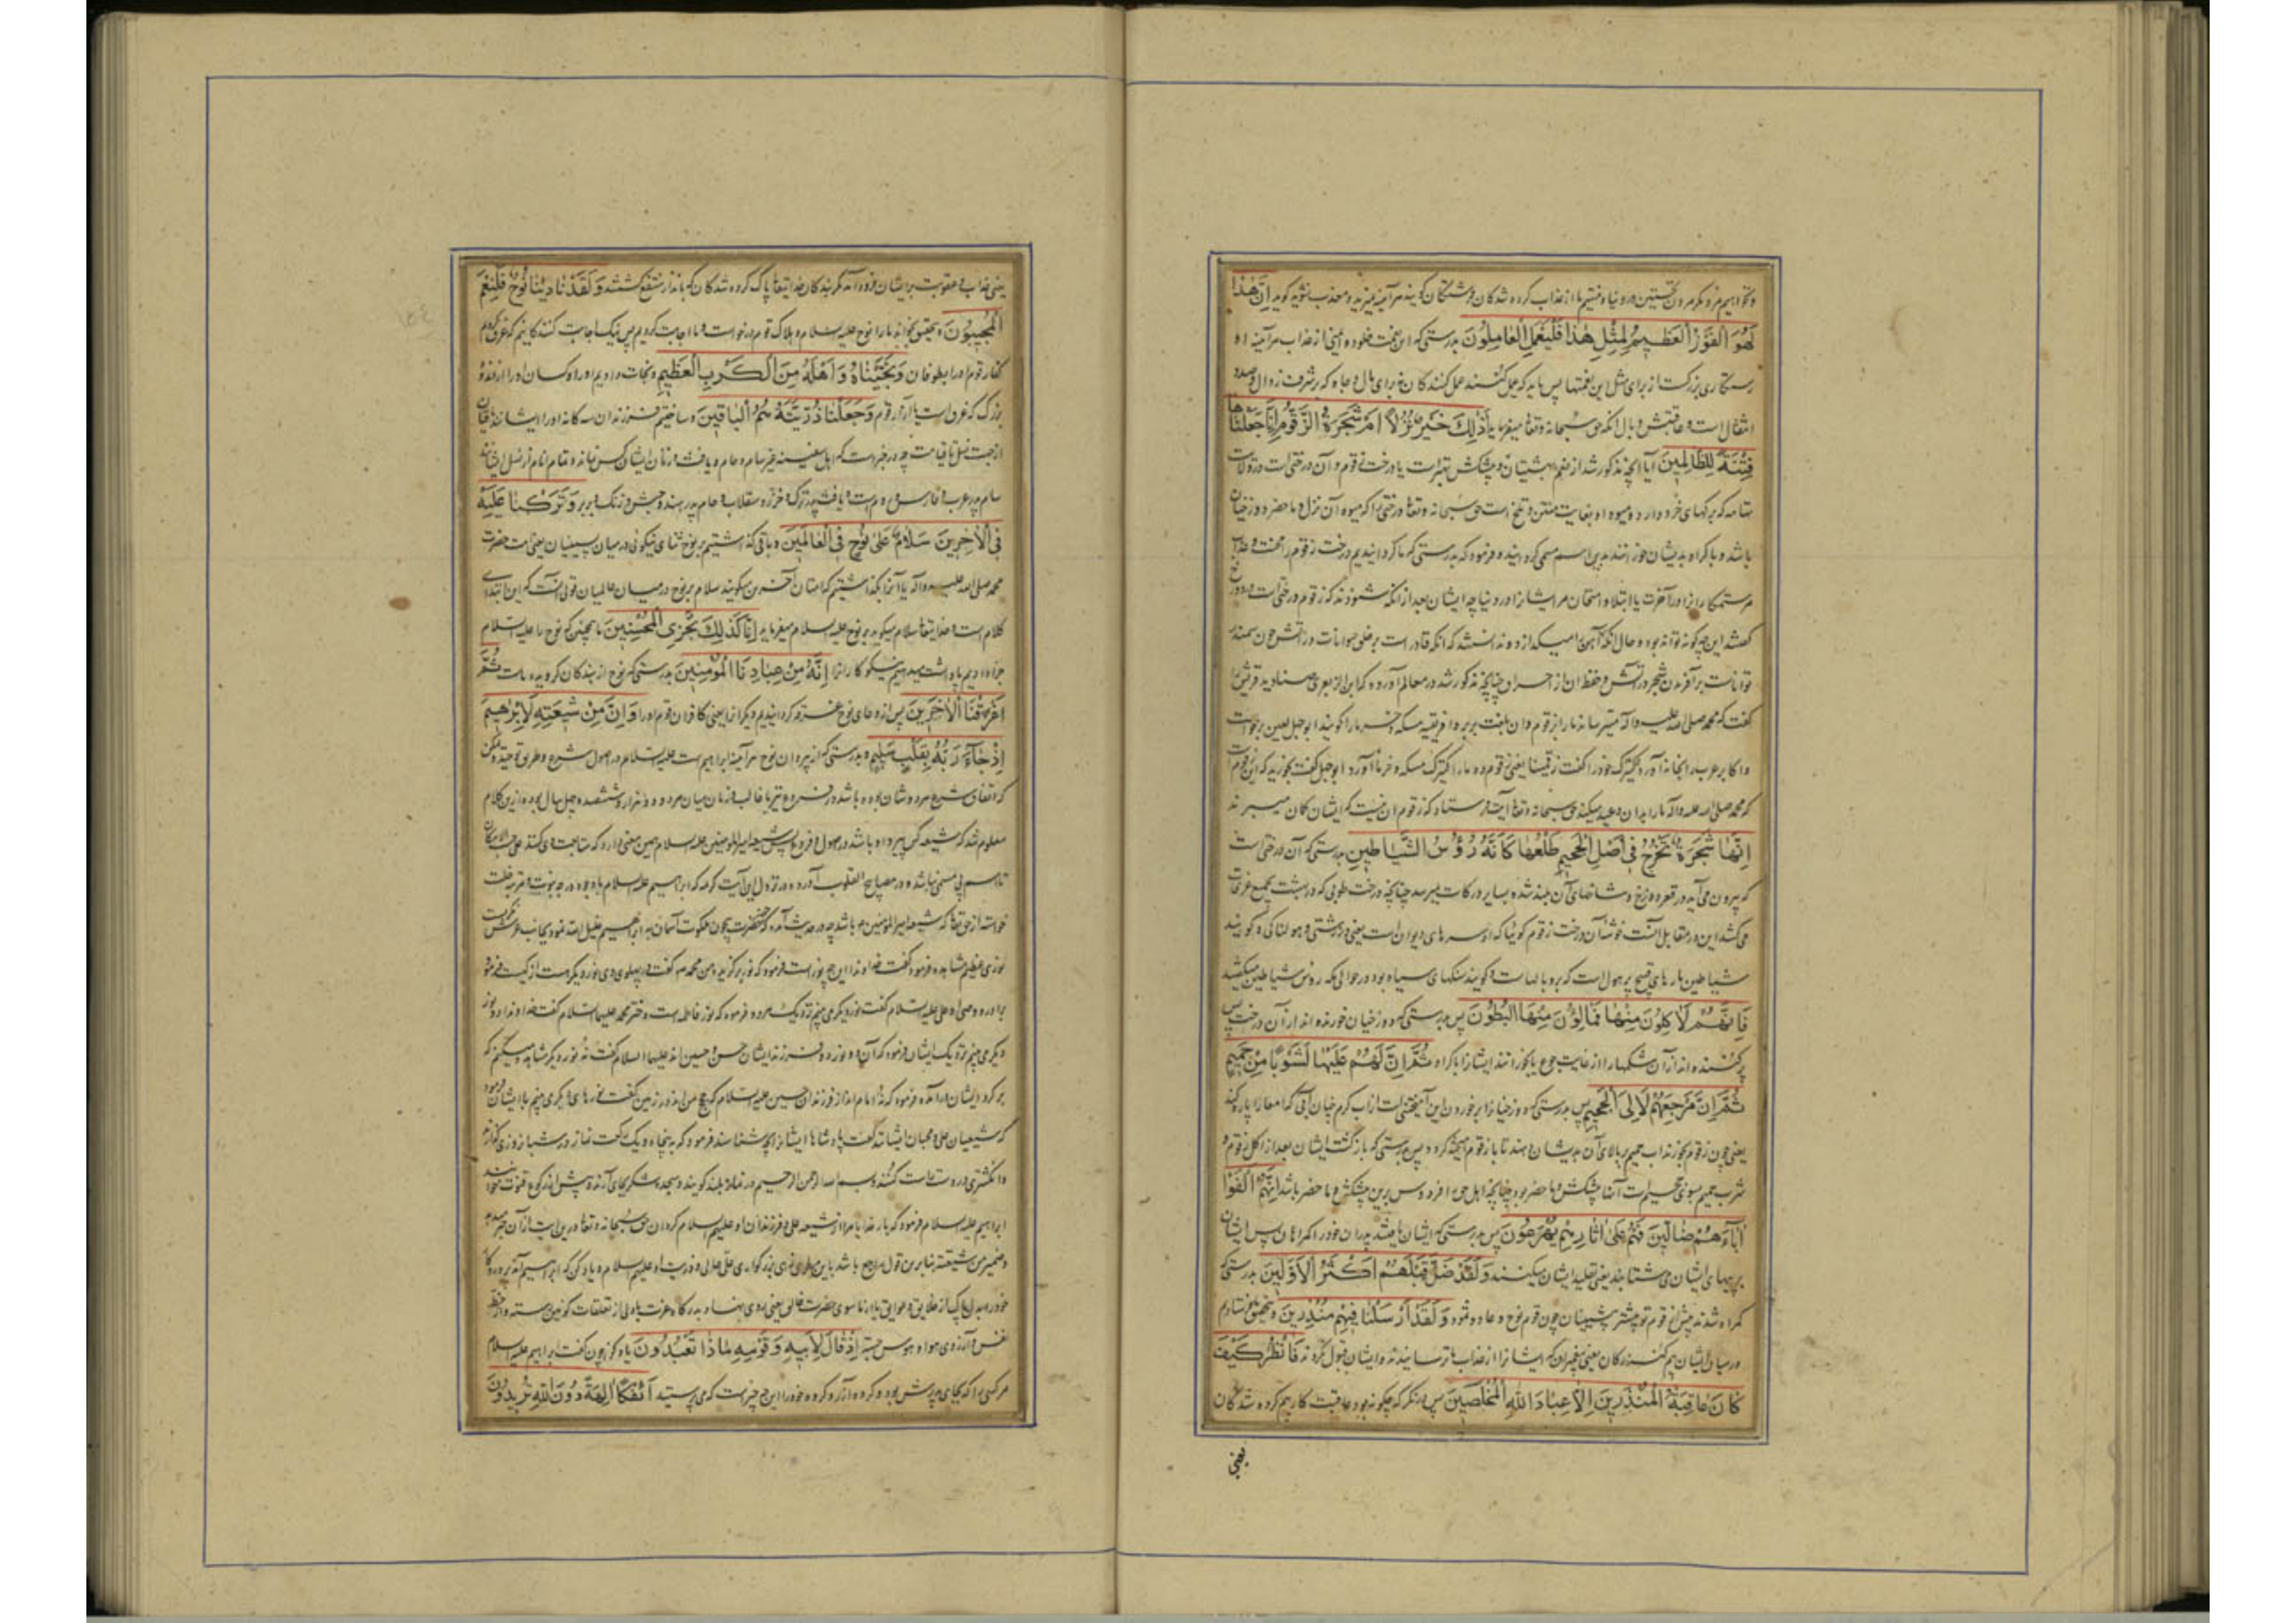 و نخواهیم مرد مگر مردن نخستین در دنیا و نیستیم ما از عذاب کرده شدگان فرشتگان گویند هرآینه نمیرید و معذب نشوید گوید اِنَّ هٰذا
لَهُوَ الْفَوْزُ الْعَظِیمُ لِمِثْلِ هٰذا فَلْیَعْمَلِ الْعامِلُونَ بدرستی که این نعمت خلود و ایمنی از عذاب هرآینه او
رستگاری بزرگست از برای مثل این نعمتها پس باید که عمل کنند عمل کنندگان نه برای مال و جاه که بر شرف زوال و صدد
انتقال است و عاقبتش وبال آنکه حق سبحانه و تعالی میفرماید اَذٰلِکَ خَیْرٌ نُزُلاً اَمْ شَجَرَةُ الزَّقُّومِ اِنّا جَعَلْناها
فِتْنَةً لِلظّالِمِینَ آیا آنچه مذکور شد از نعیم بهشتیان و پیشکش بهتر است یا درخت زقوم و آن درختی است در ولایت
تهامه که برگهای خرد دارد و میوه او بغایت منتن و تلخ است حق سبحانه و تعالی درختی را که میوه آن نزل و ما حضر دوزخیان
باشد و باکراه بدیشان خورانند بدین اسم مسمی گردانیده و فرموده که بدرستی که ما گردانیدیم درخت زقوم را محنت و عذاب
مر ستمکاران را در آخرت یا ابتلا و امتحان مر ایشان را در دنیا چه ایشان بعد از آنکه شنودند که زقوم درختی است در دوزخ
گفتند این چگونه تواند بود و حال آنکه آتش آهن را میگدازد و ندانستند که آنکه قادر است بر خلق حیوانات در آتش چون سمندر
تواناست بر آفریدن شجر در آتش و حفظ آن از احراق چنانچه مذکور شد در معالم آورده که ابن الزبعری صنادید قریش را
گفت که محمد صلی الله علیه و آله میترساند ما را بزقوم و آن بلغت بربر و افریقیه مسکه و خرما را گویند ابوجهل لعین برخواست
و اکابر عرب را بخانه آورد و کنیزک خود را گفت زقمینا یعنی زقوم ده ما را کنیزک مسکه و خرما آورد ابوجهل گفت بخورید که این زقوم است
که محمد صلی الله علیه و آله ما را بدان وعید میکند حق سبحانه و تعالی آیت فرستاد که زقوم آن نیست که ایشان گمان میبرند
اِنَّها شَجَرَةٌ تَخْرُجُ فی اَصْلِ الْجَحِیمِ طَلْعُها کَاَنَّهُ رُؤُسُ الشَّیاطِینِ بدرستی که آن درختی است
که بیرون می آید در قعر دوزخ و شاخهای آن بلند شده بسایر درکات میرسد چنانچه درخت طوبی که در بهشت بجمیع غرفات
می کشد این در مقابل آنست خوشه آن درخت زقوم گوئیا که او سرهای دیوان است یعنی در زشتی و هولناکی و گویند
شیاطین مارهای قبیح پر هول است که پر و بال است و گویند سنگهای سیاه بود در حوالی مکه رؤس شیاطین میگفتند
فَاِنَّهُمْ لَاٰکِلُونَ مِنْها فَمالِؤُنَ مِنْهَا الْبُطُونَ پس بدرستی که دوزخیان خورنده اند از آن درخت پس
پر کننده اند از آن شکمها را از غایت جوع یا بخورانند ایشان را باکراه ثُمَّ اِنَّ لَهُمْ عَلَیْها لَشَوْباً مِنْ حَمِیمٍ
ثُمَّ اِنَّ مَرْجِعَهُمْ لَاِلَی الْجَحِیمِ پس بدرستی که دوزخیان را بر خوردن این آمیختنی است از آب گرم چنان آبی که امعا را پاره کند
یعنی چون زقوم بخورند آب حمیم بر بالای آن بدیشان دهند تا با زقوم آمیخته گردد پس بدرستی که بازگشت ایشان بعد از اکل زقوم و
شرب حمیم بسوی جحیم است آنها پیشکش و ما حضر بود چنانچه اهل حق را فردوس برین پیشکش و ما حضر باشد اِنَّهُمْ اَلْفَوْا
اٰباءَهُمْ ضالِّینَ فَهُمْ عَلیٰ اٰثارِهِمْ یُهْرَعُونَ پس بدرستی که ایشان یافتند پدران خود را گمراهان پس ایشان
بر پیهای ایشان می شتابند یعنی تقلید ایشان میکنند وَلَقَدْ ضَلَّ قَبْلَهُمْ اَکْثَرُ الْاَوَّلِینَ بدرستی که
گمراه شدند پیش از قوم تو بیشتر پیشینیان چون قوم نوح و عاد و ثمود وَلَقَدْ اَرْسَلْنا فِیهِمْ مُنْذِرِینَ و بتحقیق فرستادیم
در میان ایشان بیم کنندگان یعنی پیغمبران که ایشان را از عذاب ما ترسانیدند و ایشان قبول نکردند فَانْظُرْ کَیْفَ
کانَ عاقِبَةُ الْمُنْذَرِینَ اِلّا عِبادَ اللّٰهِ الْمُخْلَصِینَ پس در نگر که چگونه بود عاقبت کار بیم کرده شدگان
یعنی
یعنی عذاب و عقوبت بر ایشان فرود آمد مگر بندگان خدایتعالی پاک کرده شدگان که بانذار منتفع گشتند وَلَقَدْ نادٰینا نُوحٌ فَلَنِعْمَ
الْمُجِیبُونَ و بتحقیق بخواند ما را نوح علیه السلام و هلاک قوم درخواست و ما اجابت کردیم پس نیک اجابت کنندگانیم که غرق کردیم
کفار قوم او را بطوفان وَنَجَّیْناهُ وَ اَهْلَهُ مِنَ الْکَرْبِ الْعَظِیمِ و نجات دادیم او را و کسان او را از اندوه
بزرگ که غرق است یا آزار قوم وَجَعَلْنا ذُرِّیَّتَهُ هُمُ الْباقِینَ و ساختیم فرزندان سه گانه او را ایشانند باقیان
از جهت نسل تا قیامت چه در خبر است که اهل سفینه غیر سام و حام و یافث و زنان ایشان کس نماند و تمام انام از نسل ایشانند
سام پدر عرب و فارس و روم است و یافث پدر ترک و خزر و سقلاب و حام پدر هند و حبش و زنگ و بربر وَتَرَکْنا عَلَیْهِ
فِی الْاٰخِرِینَ سَلامٌ عَلیٰ نُوحٍ فِی الْعالَمِینَ و باقی گذاشتیم بر نوح ثنای نیکوئی در میان پسینیان یعنی امت حضرت
محمد صلی الله علیه و آله یا آنرا بگذاشتیم که امتان آخرین میگویند سلام بر نوح در میان عالمیان قولی آنست که این ابتدای
کلام است و خدایتعالی سلام میگوید بر نوح علیه السلام میفرماید اِنّا کَذٰلِکَ نَجْزِی الْمُحْسِنِینَ ما همچنین که نوح را علیه السلام
جزا دادیم پاداشت میدهیم نیکوکاران را اِنَّهُ مِنْ عِبادِنَا الْمُؤْمِنِینَ بدرستی که نوح از بندگان گرویده ماست ثُمَّ
اَغْرَقْنَا الْاٰخَرِینَ پس از دعای نوح غرقه گردانیدیم دیگران را یعنی کافران قوم او را وَاِنَّ مِنْ شِیعَتِهِ لَاِبْراهِیمَ
اِذْ جاءَ رَبَّهُ بِقَلْبٍ سَلِیمٍ و بدرستی که از پیروان نوح هرآینه ابراهیم است علیه السلام در اصول شرع و طریق توحید و ممکن
که اتفاق شرع هر دو شان بوده باشد در فروع نیز یا غالب و زمان میان هر دو دو هزار و ششصد و چهل سال بوده ازین کلام
معلوم شد که شیعه کس پیرو او باشد در اصول و فروع پس شیعه امیرالمومنین علیه السلام همین معنی دارد که متابعت وی کند علی حسب الامکان
تا اسم بی مسمی نباشد و در مصابیح القلوب آورده در نزول این آیت کریمه که ابراهیم علیه السلام با وجود درجه نبوت و مرتبه خلت
خواست از حق تعالی که شیعه امیرالمومنین باشد چه در حدیث آمده که حضرت چون ملکوت آسمان به ابراهیم خلیل الله نمود بجانب عرش نگریست
نوری عظیم مشاهده فرمود گفت خداوندا این چه نور است فرمود که نور برگزیده من محمد گفت در پهلوی وی نور دیگر هست از کیست فرمود
برادر و وصی او علی علیه السلام گفت نور دیگر می بینم نزدیک هر دو فرمود که نور فاطمه است دختر محمد علیها السلام گفت خداوندا دو نور
دیگر می بینم نزدیک ایشان فرمود که آن دو نور دو فرزند ایشان حسن و حسین اند علیهما السلام گفت نه نور دیگر مشاهده میکنم که
بر گرد ایشان درآمده فرمود که نه امام اند از فرزندان حسین علیه السلام که حجج من اند در زمین گفت نورهای دیگر می بینم با ایشان فرمود
که شیعیان علی و محبان ایشانند گفت پادشاها ایشان را بچه شناسند فرمود که به پنجاه و یک رکعت نماز در شبانروزی گزارند
و انگشتری در دست راست کنند و بسم الله الرحمن الرحیم در نماز بلند گویند و سجده شکر بجای آرند و پیش از رکوع قنوت خوانند
ابراهیم علیه السلام فرمود که بار خدایا مرا از شیعه علی و فرزندان او علیهم السلام گردان حق سبحانه و تعالی درین آیت از آن خبر میدهد
و ضمیر من شیعته بنابرین قول راجع باشد باین عالی و ذریت او علیهم السلام و یاد کن که ابراهیم آمد به پروردگار
خود بدل پاک از علایق و عوایق یا از ما سوی حضرت خالق یعنی روی نهاد بدرگاه عزت با دلی از تعلقات کونین رسته و از حظ
نفس و آرزوی هوا و هوس جسته اِذْ قالَ لِاَبِیهِ وَقَوْمِهِ ماذا تَعْبُدُونَ یاد کن چون گفت ابراهیم علیه السلام
مر کسی را که بجای پدرش بود و گروه آزر و گروه خود را این چه چیز است که می پرستید اَئِفْکاً اٰلِهَةً دُونَ اللّٰهِ تُرِیدُونَ